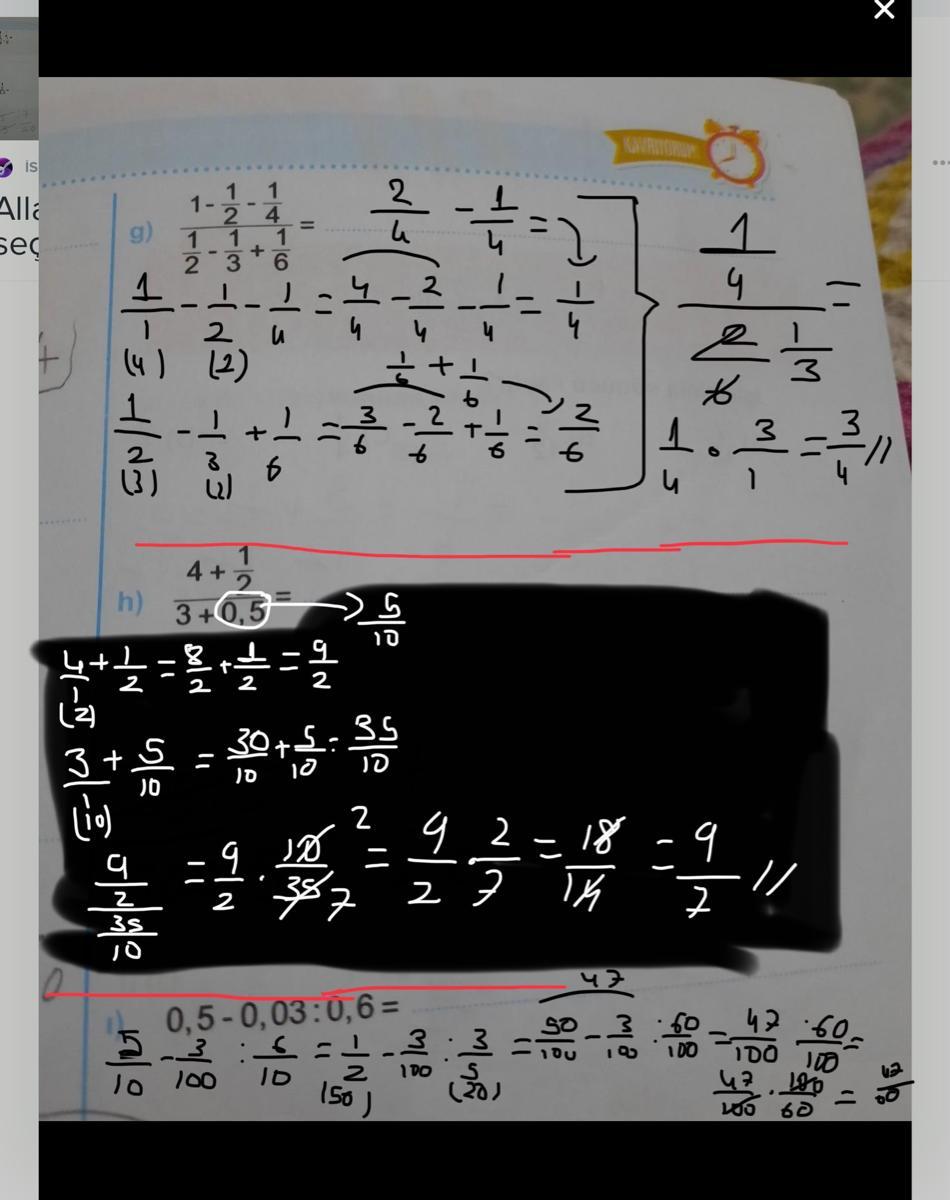 ×
is
Alla
seç
KAVRIYORUM
g) (1 - 1/2 - 1/4) / (1/2 - 1/3 + 1/6) =
2/4 - 1/4 =
1/1 - 1/2 - 1/4 = 4/4 - 2/4 - 1/4 = 1/4
(4) (2)
1/6 + 1/6
1/2 - 1/3 + 1/6 = 3/6 - 2/6 + 1/6 = 2/6
(3) (2)
1/4 / 2/6 1/3 =
1/4 · 3/1 = 3/4 //
h) (4 + 1/2) / (3 + 0,5) =
5/10
4/1 + 1/2 = 8/2 + 1/2 = 9/2
(2)
3/1 + 5/10 = 30/10 + 5/10 = 35/10
(10)
9/2 / 35/10 = 9/2 · 10/35 2 7 = 9/2 · 2/7 = 18/14 = 9/7 //
ı) 0,5 - 0,03 : 0,6 =
47
5/10 - 3/100 : 6/10 = 1/2 - 3/100 : 3/5 = 50/100 - 3/100 : 60/100 = 47/100 : 60/100 =
(50) (20)
47/100 · 100/60 = 47/60